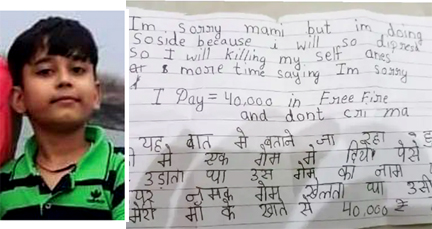 Im sorry mami but im doing
Soside because i will so dipresd
So I will killing my self
more time saying Im sorry
I Day = 40.000 in Free Fire
and dont cri ma
यह बात मे बताने जा रहा
मे एक गेम मे पैसे
उड़ाता था उस गेम का नाम
पर गेम खेलता था उसी
माँ के खाते से 40,000